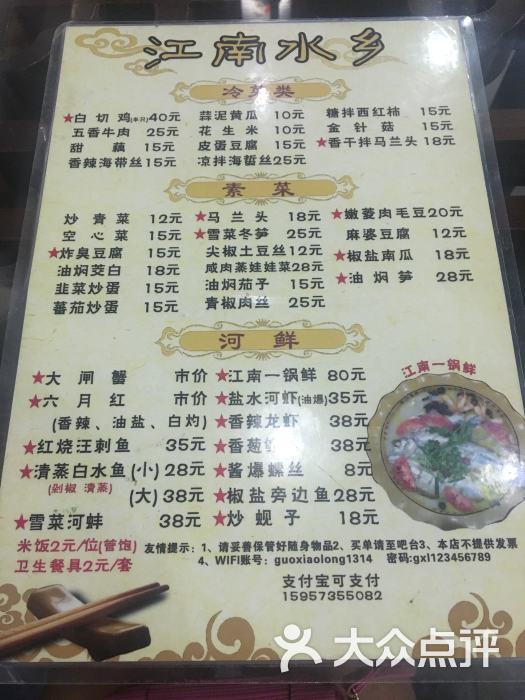 江南水乡
冷菜类
★白切鸡(半只)40元 蒜泥黄瓜 10元 糖拌西红柿 15元
五香牛肉 25元 花生米 10元 金针菇 15元
甜藕 15元 皮蛋豆腐 15元 ★香干拌马兰头 18元
香辣海带丝15元 凉拌海蜇丝25元
素菜
炒青菜 12元 ★马兰头 18元 ★嫩菱肉毛豆20元
空心菜 15元 ★雪菜冬笋 25元 麻婆豆腐 12元
★炸臭豆腐 15元 尖椒土豆丝12元 ★椒盐南瓜 18元
油焖茭白 18元 咸肉蒸娃娃菜28元 ★油焖笋 28元
韭菜炒蛋 15元 油焖茄子 15元
蕃茄炒蛋 15元 青椒肉丝 25元
河鲜
★大闸蟹 市价 ★江南一锅鲜 80元
★六月红 市价 ★盐水河虾(油爆)35元
(香辣、油盐、白灼) ★香辣龙虾 38元
★红烧汪刺鱼 35元 ★香葱 38元
★清蒸白水鱼(小)28元 ★酱爆螺丝 8元
(剁椒 清蒸) (大)38元 ★椒盐旁边鱼 28元
★雪菜河蚌 38元 ★炒蚬子 18元
江南一锅鲜
米饭2元/位(管饱) 友情提示：1、请妥善保管好随身物品2、买单请至吧台3、本店不提供发票
卫生餐具2元/套 4、WIFI账号：guoxiaolong1314 密码:gxl123456789
支付宝可支付
15957355082
大众点评